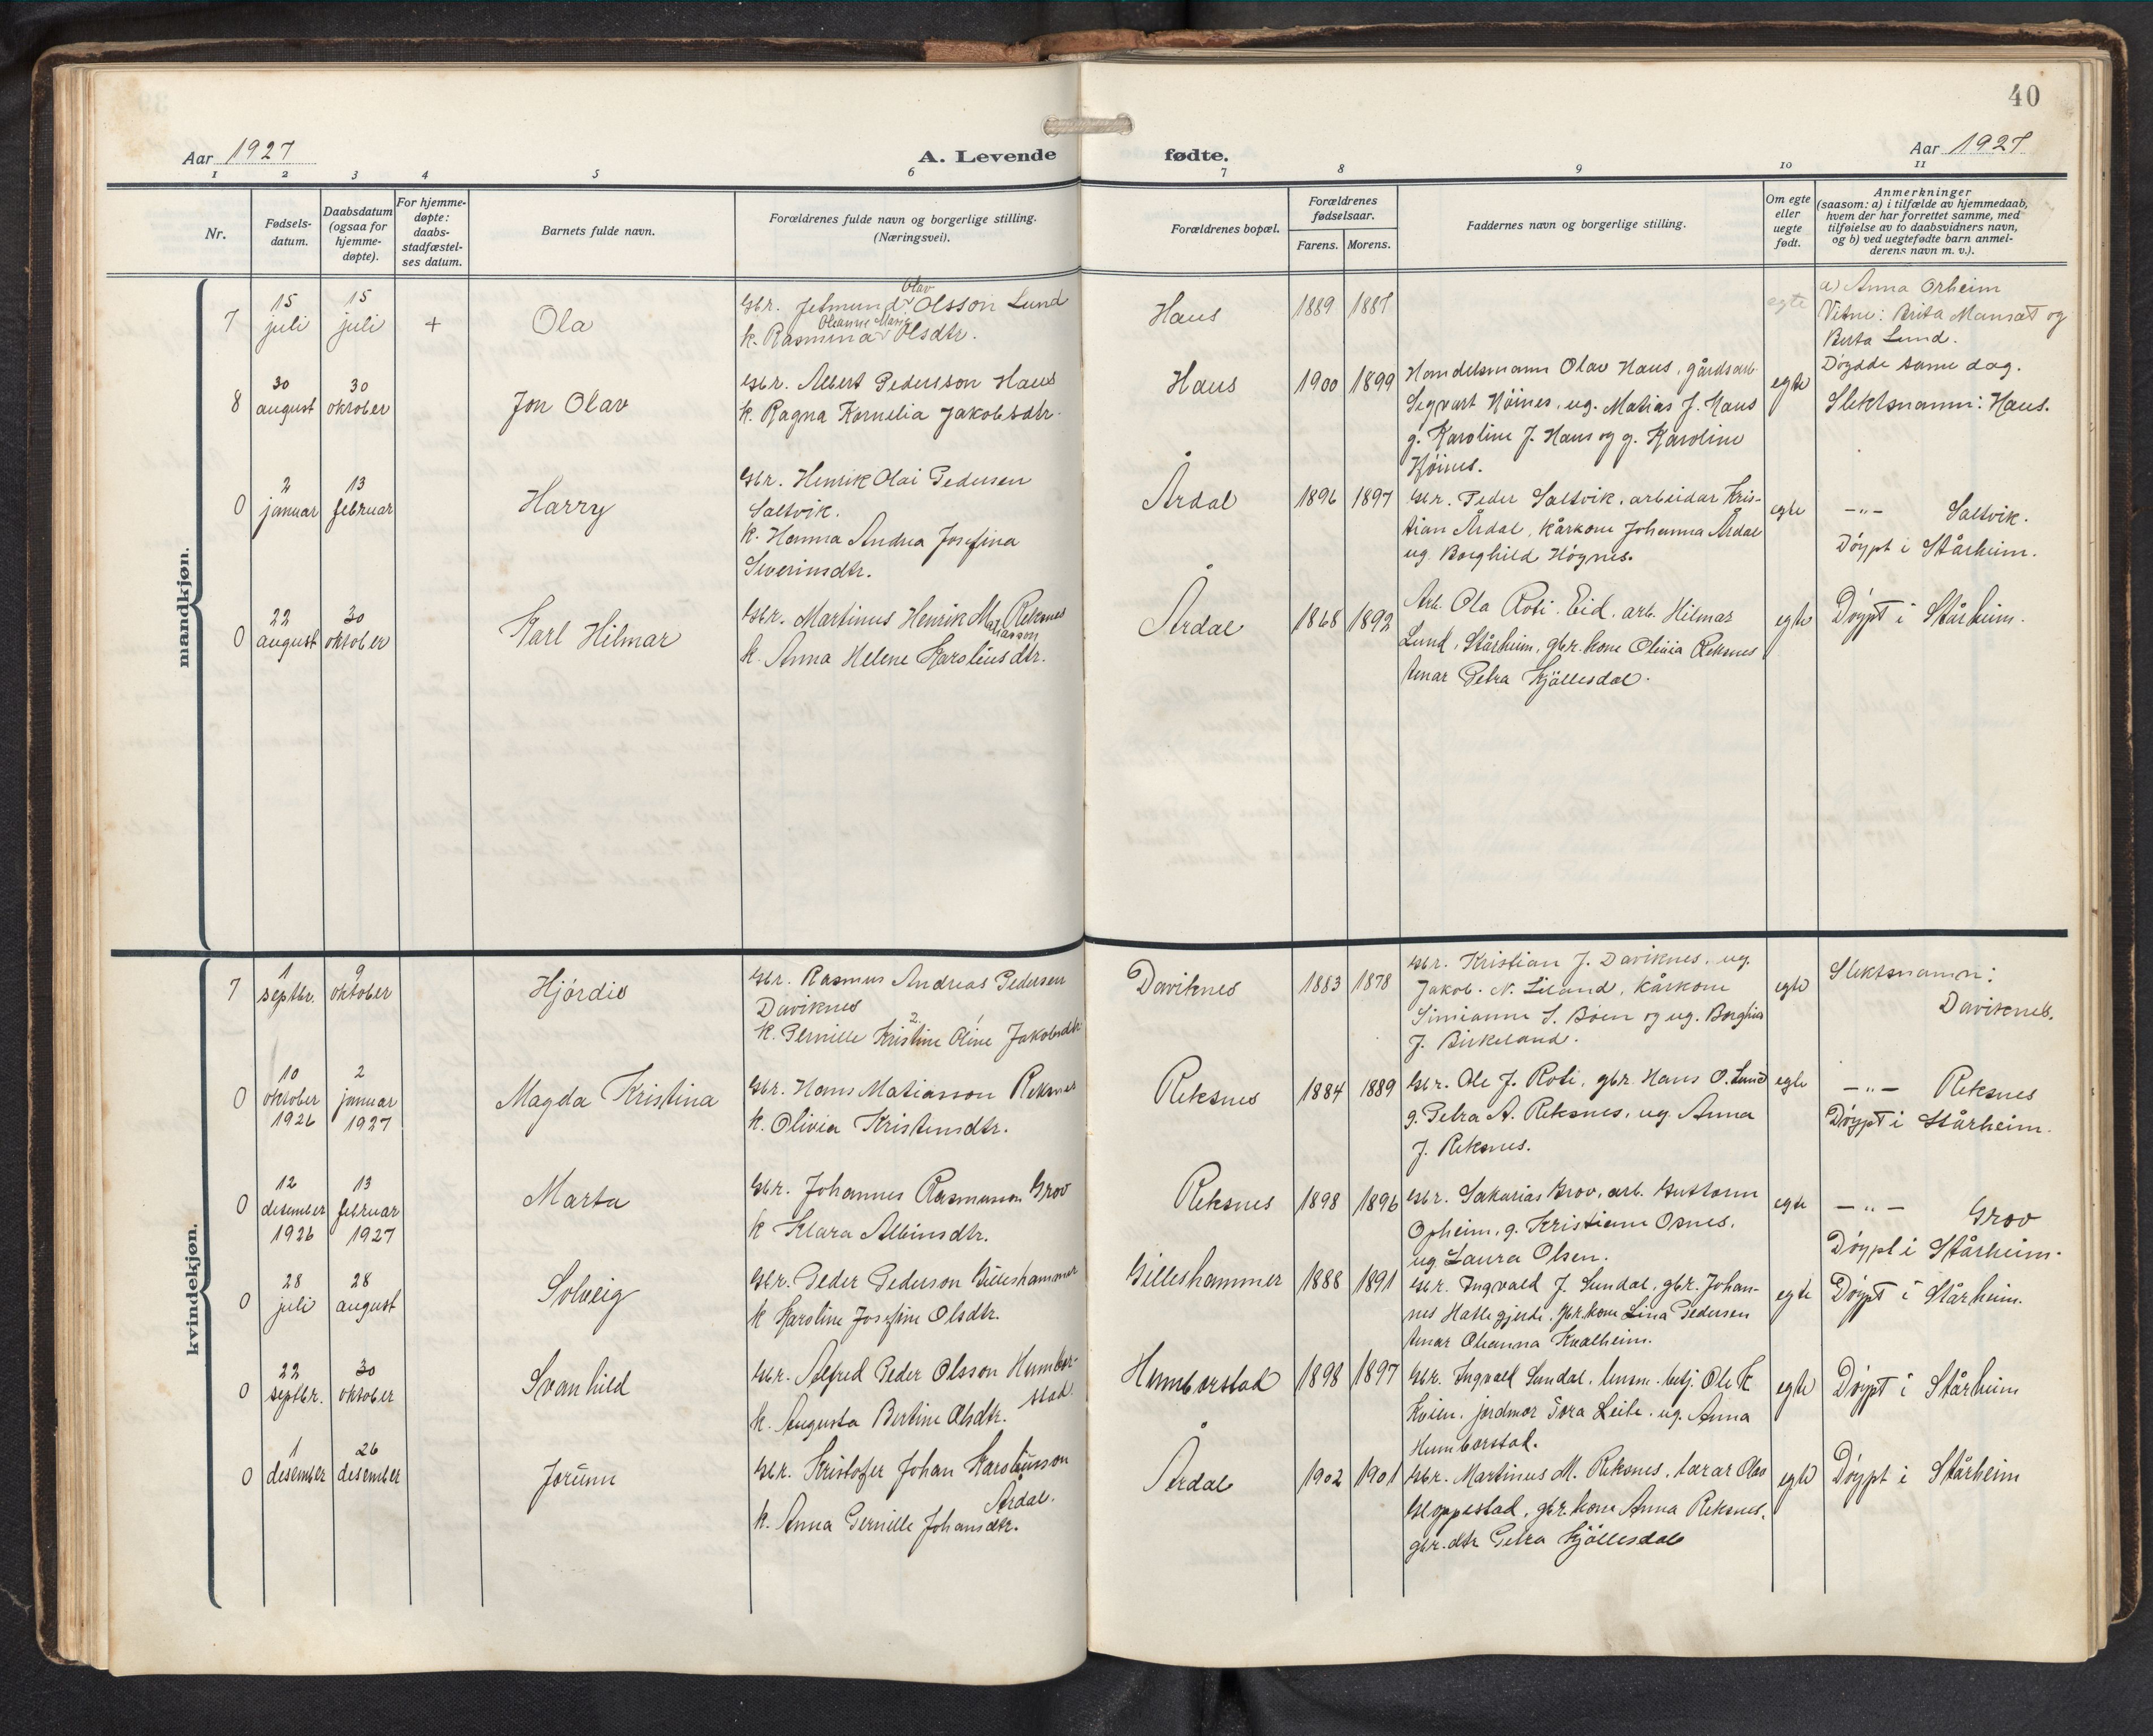 40
Aar 1927
A. Levende fødte.
Aar 1927
1 2 3 4 5 6 7 8 9 10 11
Nr.
Fødsels-
datum.
Daabsdatum
(ogsaa for
hjemme-
døpte).
For hjemme-
døpte:
daabs-
stadfæstel-
ses datum.
Barnets fulde navn.
Forældrenes fulde navn og borgerlige stilling.
(Næringsvei).
Forældrenes bopæl.
Forældrenes
fødselsaar.
Farens. Morens.
Faddernes navn og borgerlige stilling.
Om egte
eller
uegte
født.
Anmerkninger
(saasom: a) i tilfælde av hjemmedaab,
hvem der har forrettet samme, med
tilføielse av to daabsvidners navn,
og b) ved uegtefødte barn anmel-
derens navn m. v.).
mandkjøn.
7
15
juli
15
juli
+
Ola
Olav
Gbr. Jetmund Olsson Lund
Oleanne Marie
k. Rasmina Olsdtr.
Haus
1889 1887
egte
a) Anna Orheim
Vitne: Brita Mansæt og
Berta Lund.
Døydde same dag.
8
30
august
30
oktober
Jon Olav
Gbr. Albert Pedersson Haus
k. Ragna Kornelia Jakobsdtr.
Haus
1900 1899
Handelsmann Olav Haus, gårdsarb.
Sigvart Hjöines, ug. Matias J. Haus
g. Karoline J. Haus og g. Karoline
Hjöines.
egte
Slektsnamn: Haus.
0
2
januar
13
februar
Harry
Gbr. Henrik Olai Pedersen
Saltvik.
k. Hanna Andrea Josefina
Severinsdtr.
Årdal
1896 1897
Gbr. Peder Saltvik, arbeidar Kris-
tian Årdal, kårkone Johanna Årdal
ug. Borghild Høgnes.
egte
-"- Saltvik.
Døypt i Stårheim.
0
22
august
30
oktober
Karl Hilmar
Gbr. Martinus Henrik Matiasson Reksnes
k. Anna Helene Karoliusdtr.
Årdal
1868 1892
Arb. Ola Roti. Eid, arb. Hilmar
Lund, Stårheim, gbr. kone Olivia Reksnes
tenar Petra Kjöllesdal.
egte
Døypt i Stårheim.
kvindekjøn.
7
1
septbr.
9
oktober
Hjördis
Gbr. Rasmus Andreas Pedersen
Daviknes
2. 1
k. Pernille Kristine Oline Jakobsdtr
Daviknes
1883 1878
Gbr. Kristian J. Daviknes, ug.
Jakob N. Liland, kårkone
Simianne S. Böen og ug. Borghild
J. Birkeland.
egte
Slektsnamn:
Daviknes.
0
10
oktober
1926
2
januar
1927
Magda Kristina
Gbr. Hans Matiasson Reksnes
k. Olivia Kristensdtr.
Reksnes
1884 1889
Gbr. Ole J. Roti, gbr. Hans O. Lund
g. Petra A. Reksnes, ug. Anna
J. Reksnes.
egte
-"- Reksnes
Døypt i Stårheim.
0
12
desember
1926
13
februar
1927
Marta
Gbr. Johannes Rasmusson Grov
k Klara Albinsdtr.
Reksnes
1898 1896
Gbr. Sakarias Grov, arb. Guttorm
Opheim, g. Kristiane Osnes,
ug. Laura Olsen.
egte
-"- Grov
Døypt i Stårheim.
0
28
juli
28
august
Solveig
Gbr. Peder Pederson Gilleshammer
k Karoline Josefine Olsdtr.
Gilleshammer
1888 1891
Gbr. Ingvald J. Sundal, gbr. Johan-
nes Hattegjerde, gbr.kone Lina Pedersen
tenar Oleanna Kvalheim.
egte
Døypt i Stårheim.
0
22
septbr.
30
oktober
Svanhild
Gbr. Alfred Peder Olsson Humbor-
stad.
k. Augusta Bertine Olsdtr.
Humborstad
1898 1897
Gbr. Ingvald Sundal, lensm. betj. Ole K
Kvien, jordmor Tora Leite, ug. Anna
Humborstad.
egte
Døypt i Stårheim
0
1
desember
26
desember
Jorunn
Gbr. Kristofer Johan Karoliusson
Årdal.
k. Anna Pernille Johansdtr.
Årdal
1902 1901
Gbr. Martinus M. Reksnes, lærar Olav
Gloppestad, gbr. kone Anna Reksnes,
gbr.dtr Petra Kjöllesdal
egte
Døypt i Stårheim